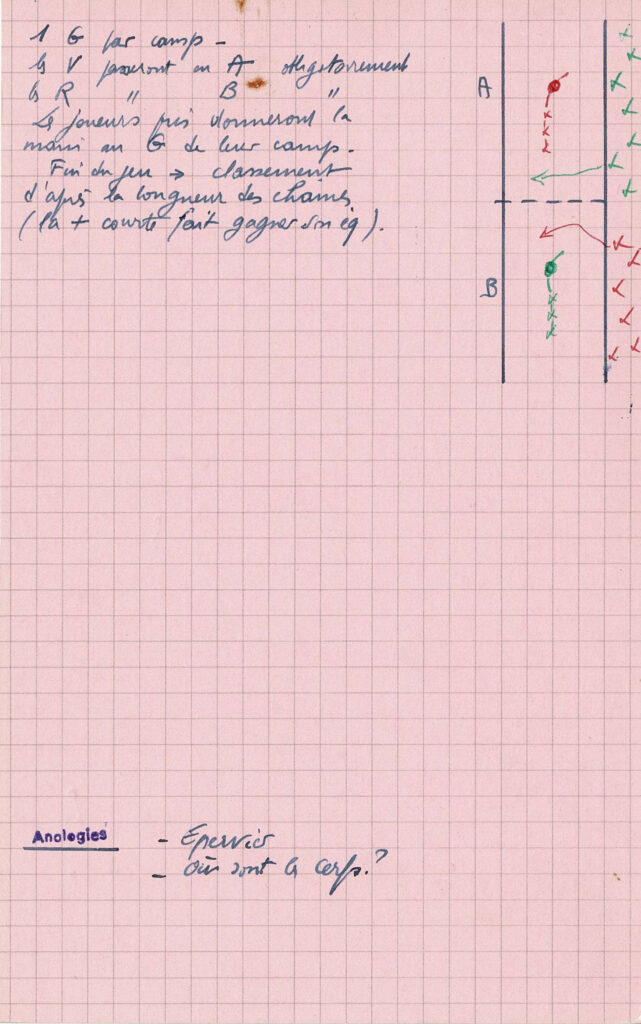 1 G par camp -
les V passeront en A obligatoirement
les R " B "
Les joueurs pris donneront la
main au G de leur camp.
Fin du jeu → classement
d'après la longueur des chaînes
(la + courte fait gagner son éq).
A
B
Analogies
- Epervier
- Où sont les cerfs.?